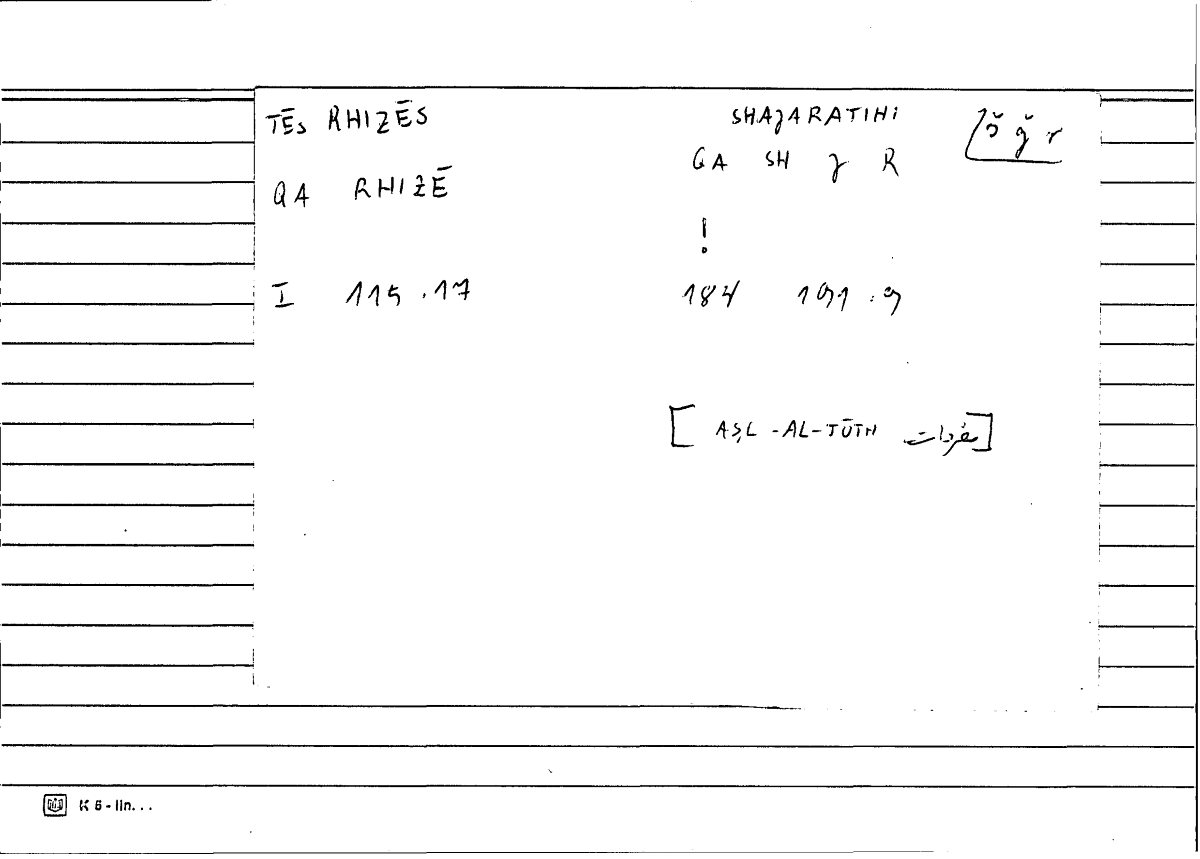 TĒS RHIZĒS SHAJARATIHI š ǧ r
QA RHIZĒ QA SH J R
!
I 115.17 184 191.9
[ AṢL -AL-TŪTH مفردات ]
K 6 - lin...